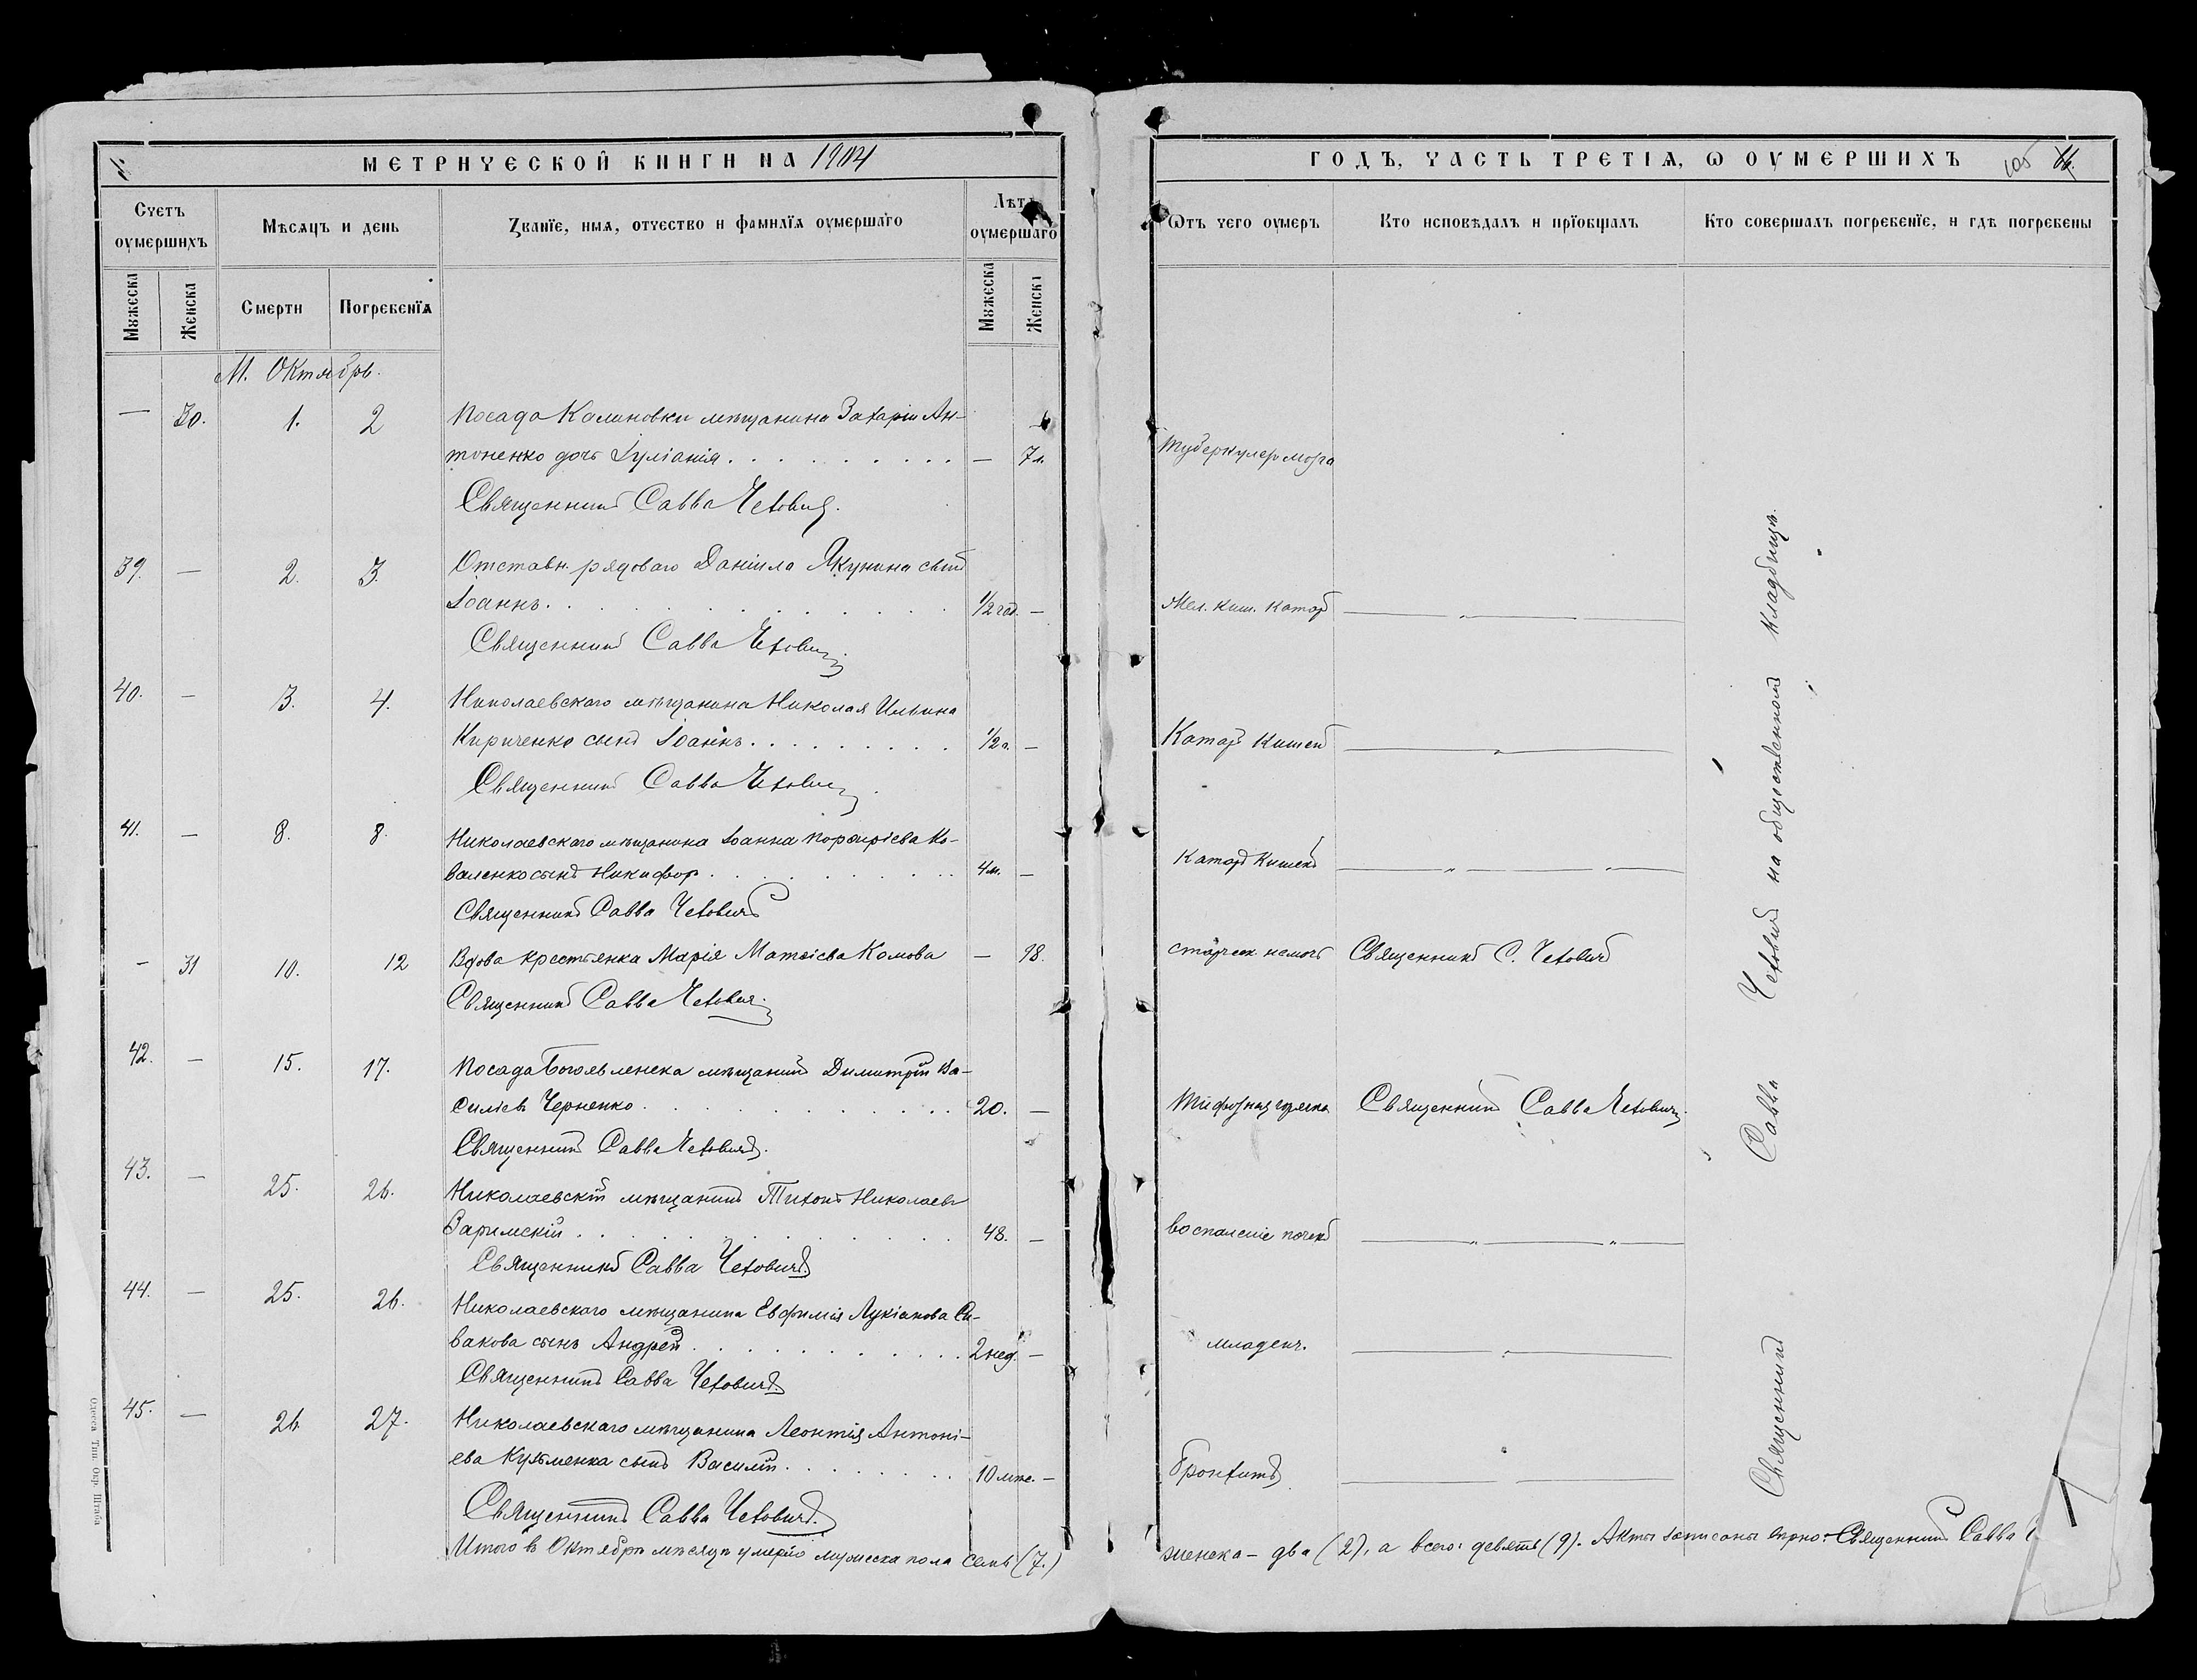 МЕТРИЧЕСКОЙ КНИГИ НА 1904
ГОДЪ, ЧАСТЬ ТРЕТІѦ, Ѡ ОУМЕРШИХЪ 105
Счетъ оумершихъ
Мѣсяцъ и день
Званїе, имѧ, отчество и фамилїѧ оумершагѡ
Лѣтъ оумершагѡ
Ѿтъ чего оумеръ
Кто исповѣдалъ и прїобщалъ
Кто совершалъ погребенїе, и гдѣ погребены
Мꙋжеска
Женска
Смерти
Погребенїѧ
Мꙋжеска
Женска
М. Октябрь.
— 30. 1. 2 Посада Калиновки мѣщанина Захарія Ан-
тоненко дочь Іуліанія . . . — 7 л. Туберкулезъ мозга
Священникъ Савва Чеховичъ.
39. — 2. 3. Отставн. рядового Даніила Якунина сынъ
Іоаннъ . . . 1/2 год. — Жел. киш. катар
Священникъ Савва Чеховичъ
40. — 3. 4. Николаевскаго мѣщанина Николая Ильина
Кириченко сынъ Іоаннъ . . . 1/2 г. — Катар кишекъ
Священникъ Савва Чеховичъ
41. — 8. 8. Николаевскаго мѣщанина Іоанна Порфиріева Ко-
валенко сынъ Никифор . . . 4 м. — Катар кишекъ
Священникъ Савва Чеховичъ
— 31 10. 12 Вдова крестьянка Марія Матѳіева Комова — 98. старческ. немочь Священникъ С. Чеховичъ
Священникъ Савва Чеховичъ
42. — 15. 17. Посада Богоявленска мѣщанинъ Димитрій Ва-
силіевъ Черненко . . . 20. — Тифозная горячка Священникъ Савва Чеховичъ.
Священникъ Савва Чеховичъ.
43. — 25. 26. Николаевскій мѣщанинъ Тихонъ Николаевъ
Заримскій . . . 48. — воспаленіе почекъ
Священникъ Савва Чеховичъ.
44. — 25. 26. Николаевскаго мѣщанина Евфимія Лукіанова Си-
вакова сынъ Андрей . . . 2 нед. — младенч.
Священникъ Савва Чеховичъ
45. — 26 27. Николаевскаго мѣщанина Леонтія Антоні-
ева Кузьменка сынъ Василій . . . 10 мѣс. — бронхитъ
Священникъ Савва Чеховичъ.
Итого въ Октябрѣ мѣсяцѣ умерло мужеска пола семь (7.)
женска — два (2), а всего: девять (9). Акты записаны вѣрно: Священникъ Савва
Священникъ Савва Чеховичъ на общественномъ кладбищѣ.
Одесса Тип. Окр. Штаба